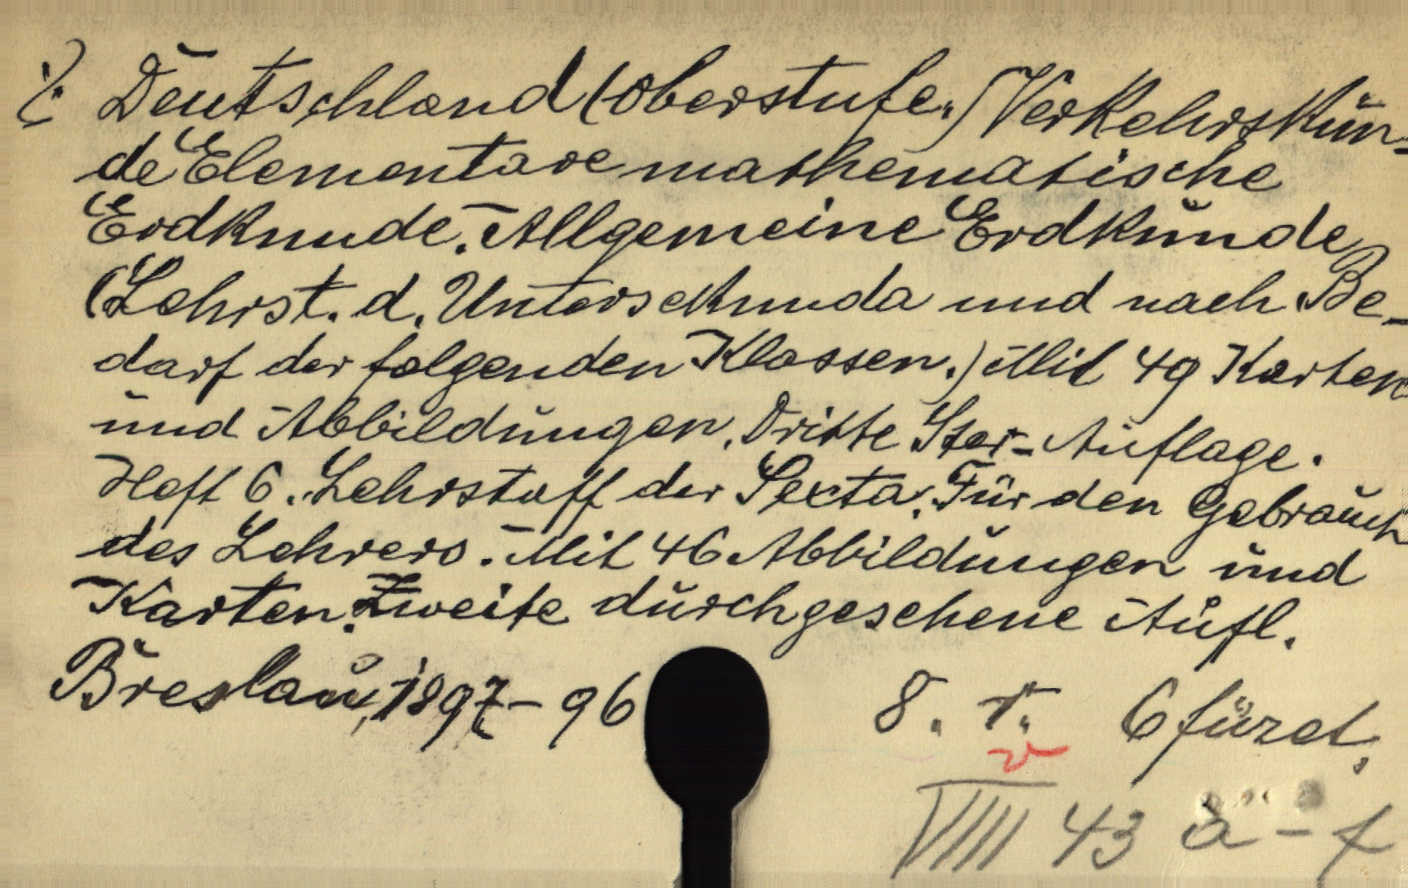 %. Deutschland (Oberstufe.) Verkehrskun-
de Elementare mathematische
Erdkunde. Allgemeine Erdkunde
(Lehrst. d. Untersekunda und nach Be-
darf der folgenden Klassen.) Mit 49 Karten
und Abbildungen. Dritte Ster-Auflage.
Heft 6. Lehrstoff der Sexta. Für den Gebrauch
des Lehrers. Mit 46 Abbildungen und
Karten. Zweite durchgesehene Aufl.
Breslau, 1897-96 8. r. 6 füzet.
v
VIIII 43 a-f